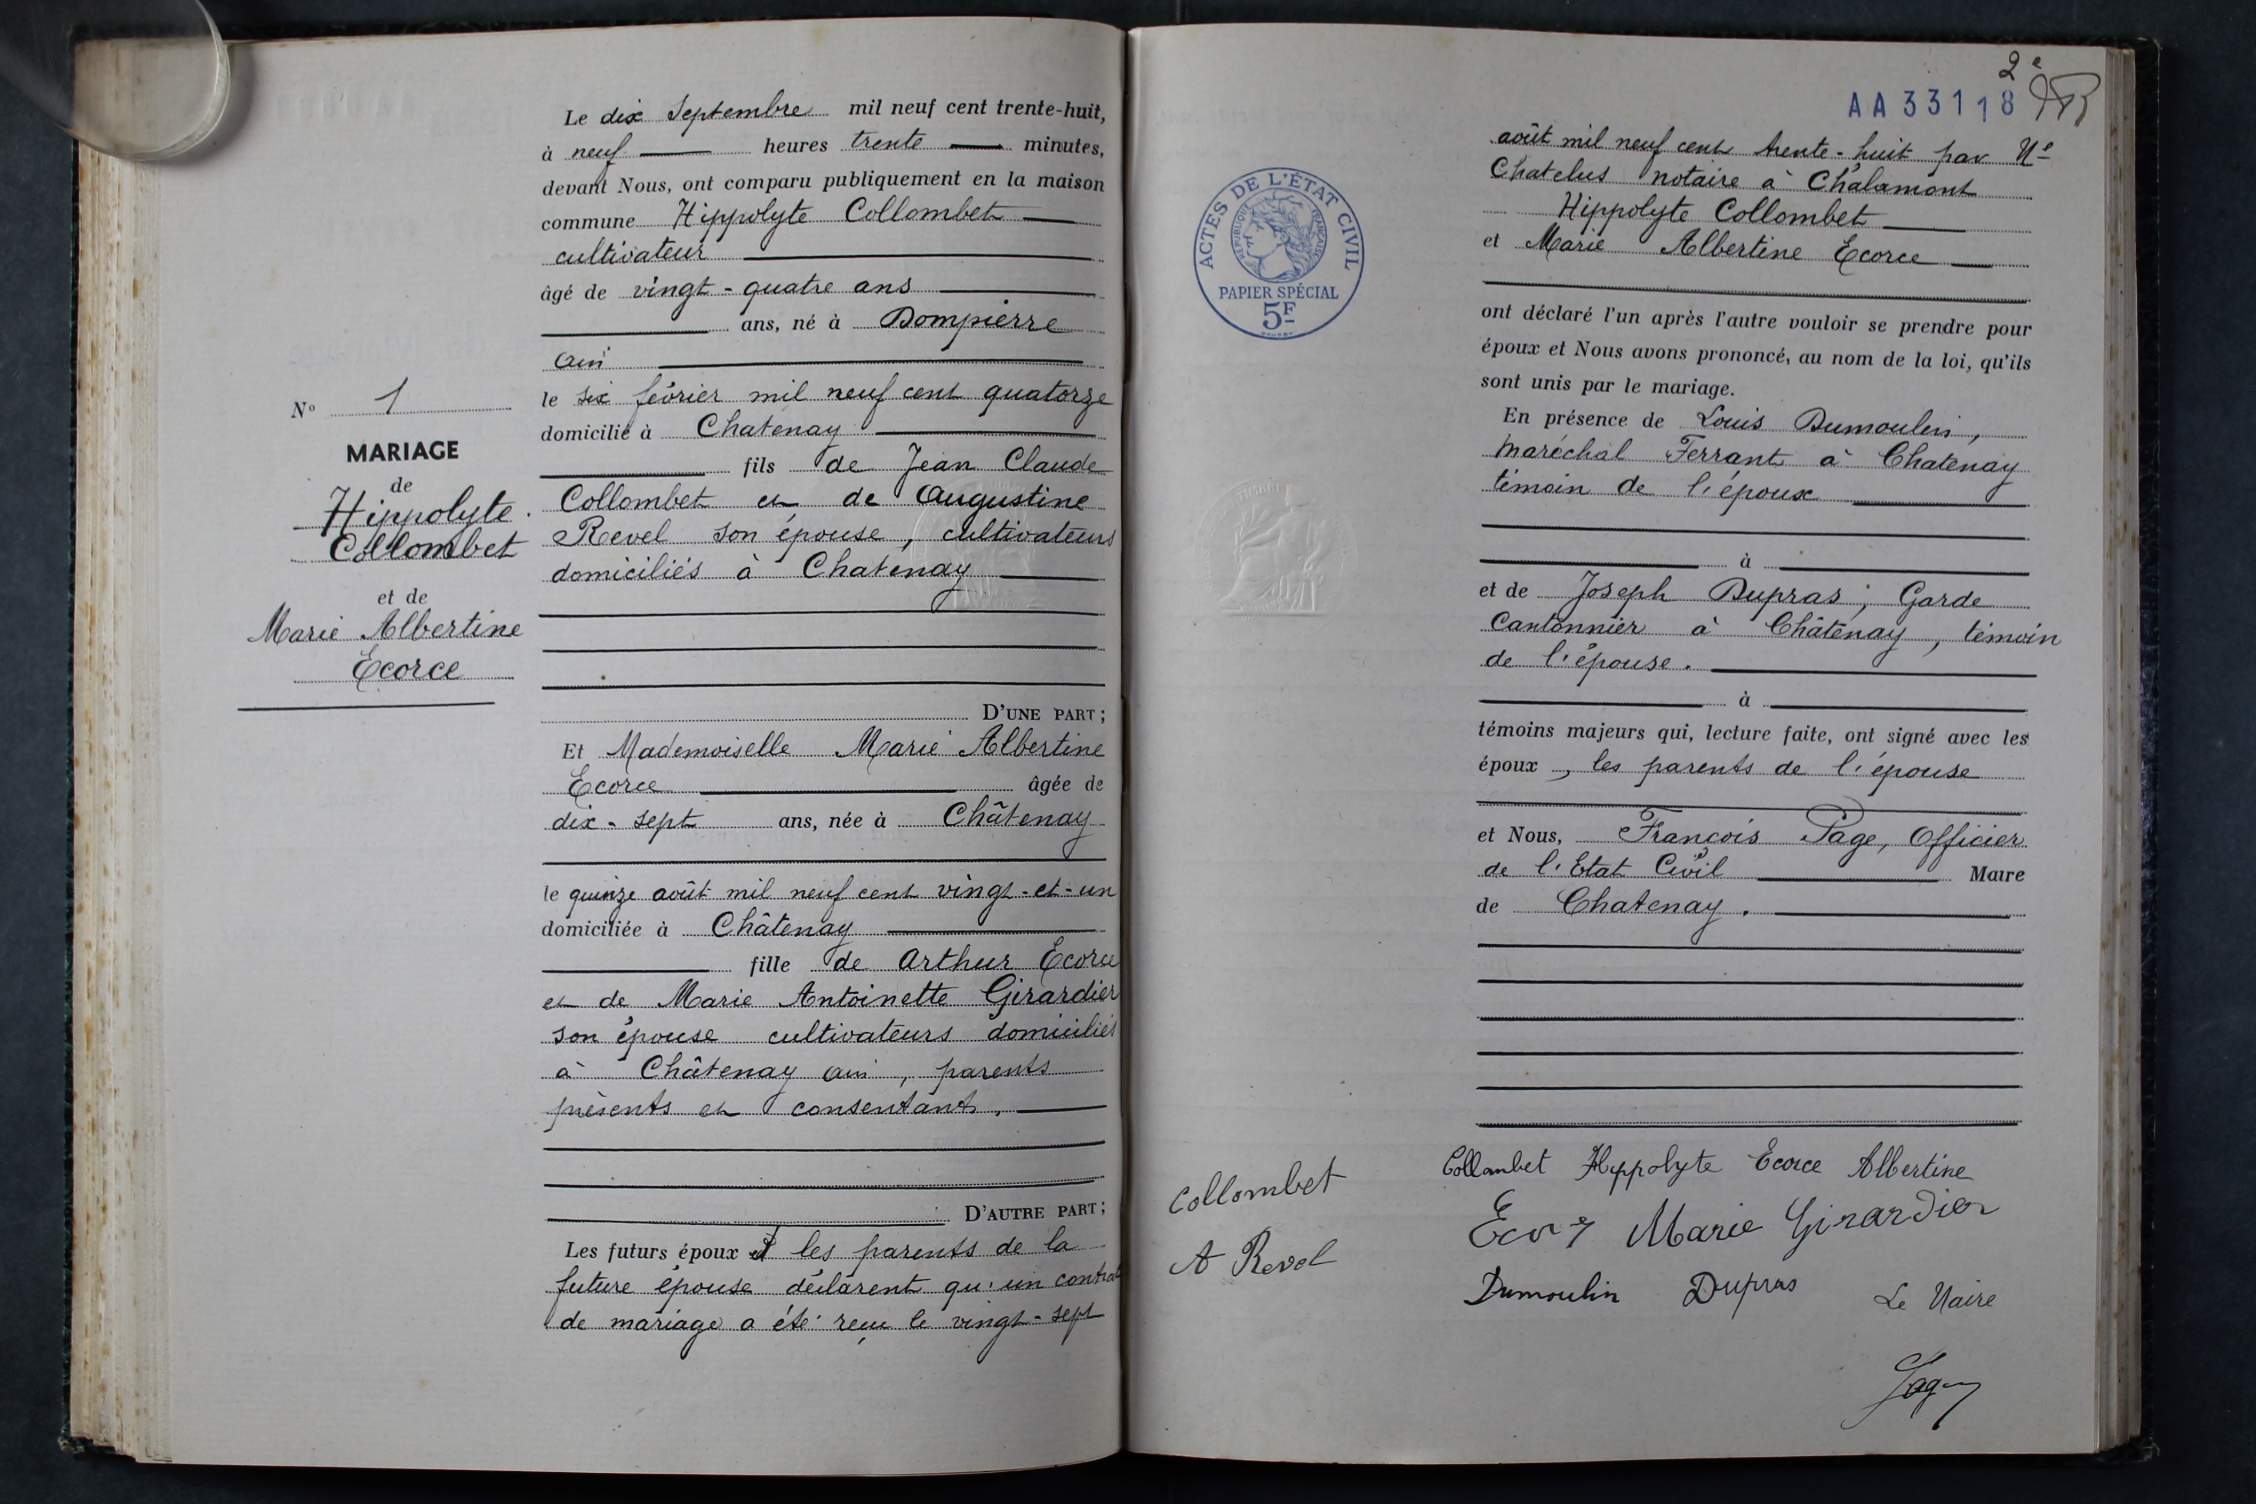 N° 1
MARIAGE
de
Hippolyte
Collombet
et de
Marie Albertine
Ecorce
Le dix Septembre mil neuf cent trente-huit,
à neuf heures trente minutes,
devant Nous, ont comparu publiquement en la maison
commune Hippolyte Collombet
cultivateur
âgé de vingt-quatre ans
ans, né à Dompierre
Ain
le six février mil neuf cent quatorze
domicilié à Chatenay
fils de Jean Claude
Collombet et de Augustine
Revel son épouse, cultivateurs
domiciliés à Chatenay
D'UNE PART;
Et Mademoiselle Marie Albertine
Ecorce âgée de
dix-sept ans, née à Châtenay
le quinze août mil neuf cent vingt-et-un
domiciliée à Châtenay
fille de Arthur Ecorce
et de Marie Antoinette Girardier
son épouse cultivateurs domiciliés
à Châtenay Ain, parents
présents et consentants.
D'AUTRE PART;
Les futurs époux et les parents de la
future épouse déclarent qu'un contrat
de mariage a été reçu le vingt-sept
2e
AA33118
ACTES DE L'ÉTAT CIVIL
RÉPUBLIQUE FRANÇAISE
PAPIER SPÉCIAL
5F
août mil neuf cent trente-huit par Me
Chatelus notaire à Chalamont
Hippolyte Collombet
et Marie Albertine Ecorce
ont déclaré l'un après l'autre vouloir se prendre pour
époux et Nous avons prononcé, au nom de la loi, qu'ils
sont unis par le mariage.
En présence de Louis Dumoulin,
Maréchal Ferrant à Chatenay
témoin de l'époux
à
et de Joseph Dupras, Garde
Cantonnier à Châtenay, témoin
de l'épouse.
à
témoins majeurs qui, lecture faite, ont signé avec les
époux, les parents de l'épouse
et Nous, François Page, Officier
de l'Etat Civil Maire
de Chatenay.
Collombet Hippolyte Ecorce Albertine
Collombet
Marie Girardier
A Revel
Dumoulin Dupras Le Maire
Page